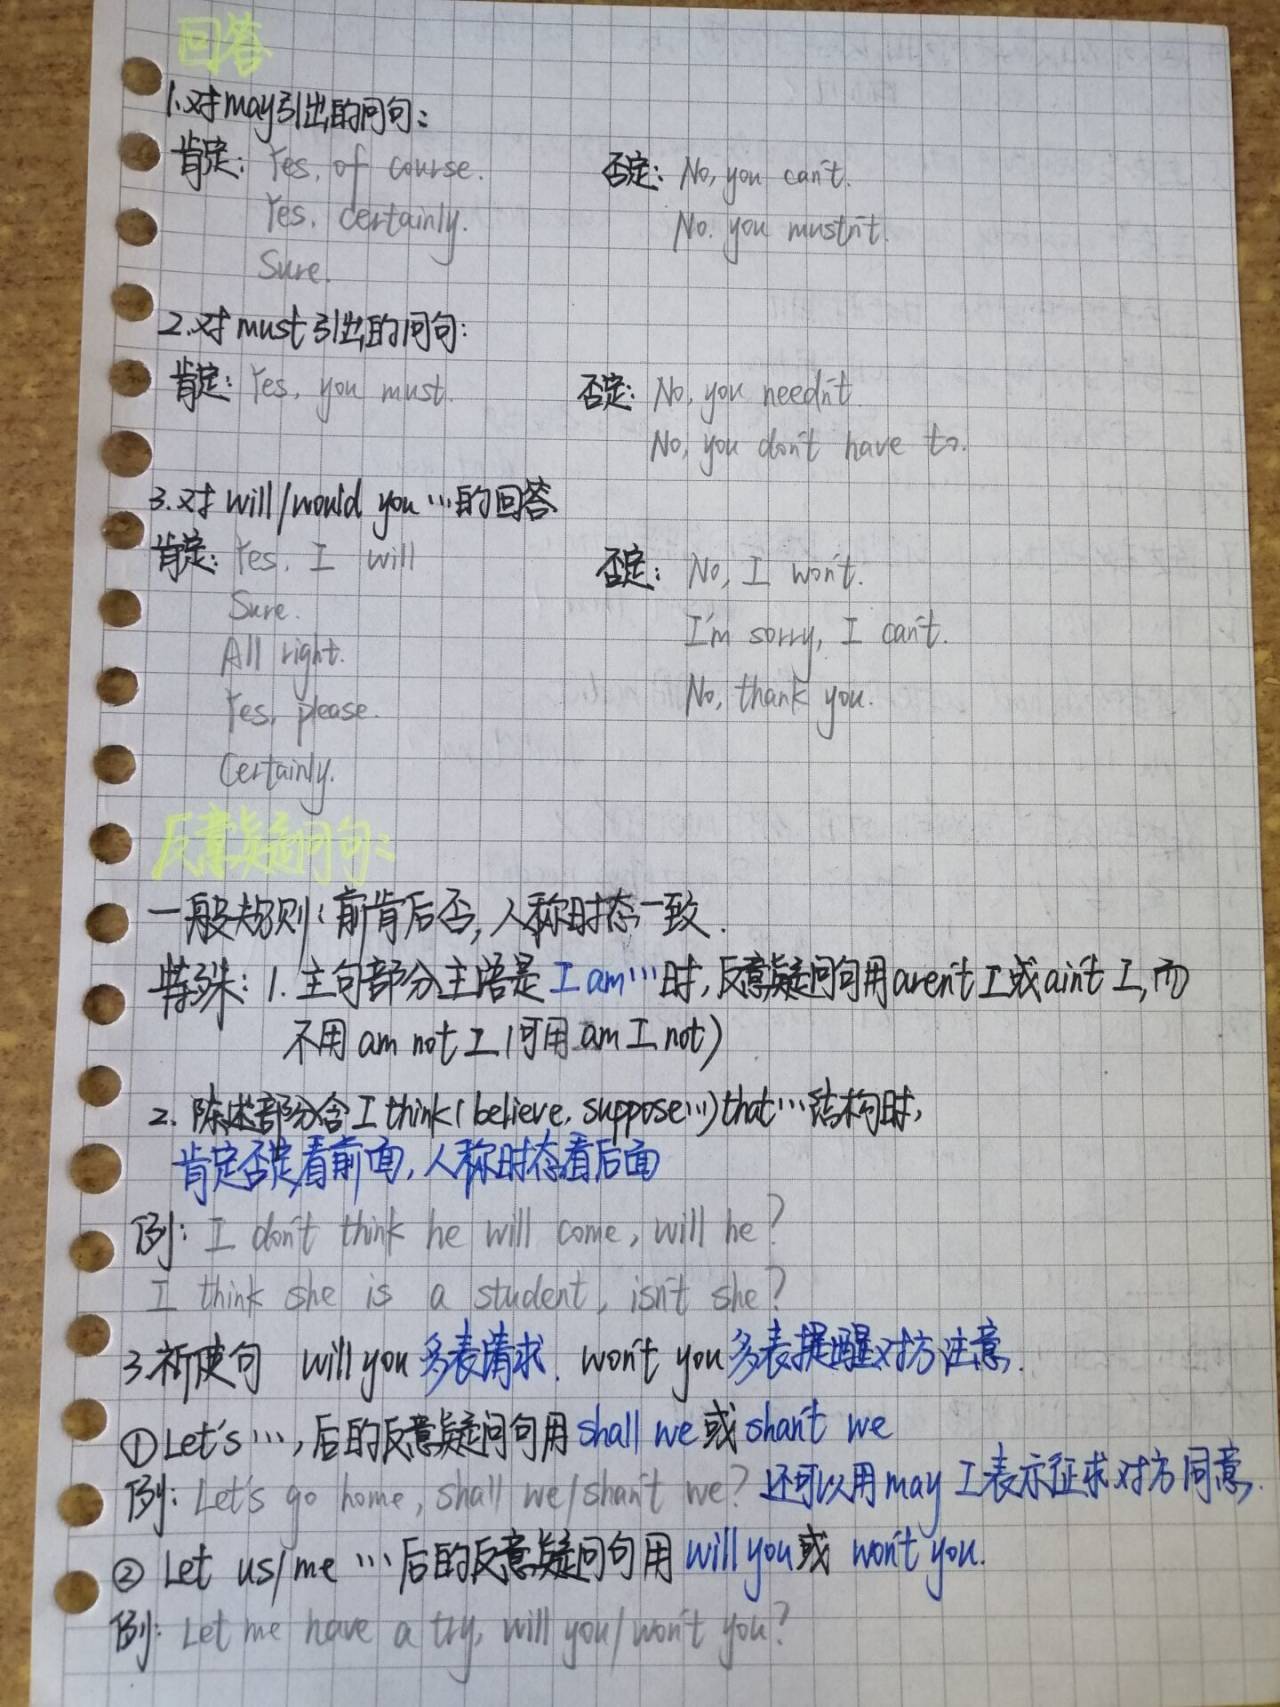 回答
1.对may引出的问句:
肯定: Yes, of course. 否定: No, you can't.
Yes, certainly. No. you mustn't.
Sure.
2.对must引出的问句:
肯定: Yes, you must. 否定: No, you needn't
No, you don't have to.
3.对will/would you …的回答
肯定: Yes, I will 否定: No, I won't.
Sure. I'm sorry, I can't.
All right. No, thank you.
Yes, please.
Certainly.
反意疑问句:
一般规则:前肯后否,人称时态一致.
特殊: 1. 主句部分主语是I am…时,反意疑问句用aren't I或ain't I,而
不用am not I(可用am I not)
2. 陈述部分含I think(believe, suppose…)that…结构时,
肯定否定看前面,人称时态看后面
例: I don't think he will come, will he?
I think she is a student, isn't she?
3.祈使句 will you多表请求. won't you多表提醒对方注意.
①Let's…,后的反意疑问句用shall we或shan't we
例: Let's go home, shall we/shan't we? 还可以用may I表示征求对方同意.
② Let us/me …后的反意疑问句用 will you或 won't you.
例: Let me have a try, will you/won't you?